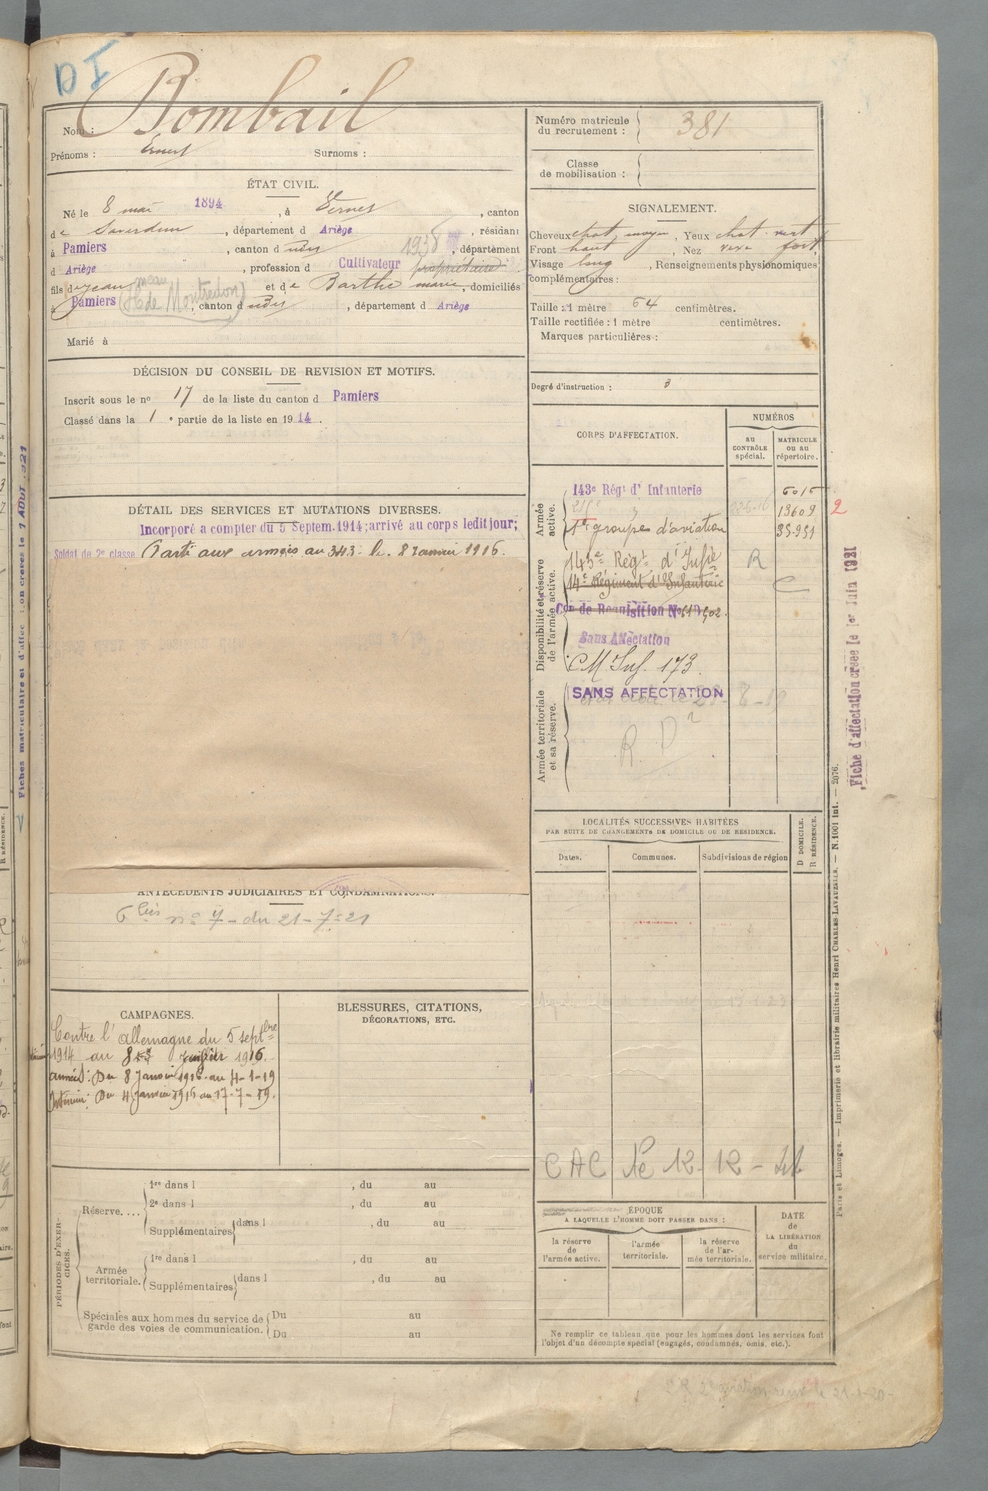 D I
Nom : Bombail
Prénoms : Ernest Surnoms :
Numéro matricule du recrutement : 381
Classe de mobilisation :
ÉTAT CIVIL.
Né le 8 mai 1894, à Vernet, canton
de Saverdun, département d Ariège, résidant
à Pamiers, canton d udés 1938, département
d Ariège, profession d Cultivateur propriétaire
fils de Jean et de Barthe marie, domiciliés
à Pamiers (hameau de Montredon), canton d udés, département d Ariège
Marié à
SIGNALEMENT.
Cheveux chat. moyen, Yeux chat. vert
Front haut, Nez vexe fort
Visage long, Renseignements physionomiques
complémentaires :
Taille : 1 mètre 64 centimètres.
Taille rectifiée : 1 mètre centimètres.
Marques particulières :
Degré d'instruction : 3
DÉCISION DU CONSEIL DE REVISION ET MOTIFS.
Inscrit sous le no 17 de la liste du canton d Pamiers
Classé dans la 1e partie de la liste en 1914.
DÉTAIL DES SERVICES ET MUTATIONS DIVERSES.
Incorporé a compter du 5 Septem. 1914; arrivé au corps ledit jour;
Soldat de 2e classe Parti aux armées au 343. le 8 Janvier 1916.
CORPS D'AFFECTATION.
NUMÉROS
AU CONTRÔLE spécial.
MATRICULE ou au répertoire.
Armée active.
143e Régt d' Infanterie 6015
13609 2
1er groupes d'aviation 35.951
Disponibilité et réserve de l'armée active.
143e Régt d'Infie R
14e Régiment d'Infanterie C
Con de Requisition No
Sans Affectation
CM Inf. 173.
Armée territoriale et sa réserve.
SANS AFFECTATION
R. D
Fiches matriculaire et d'affectation créées le 1 AOUT 1921
Fiche d'affectation créée le 1er Juin 1931
LOCALITÉS SUCCESSIVES HABITÉES
PAR SUITE DE CHANGEMENTS DE DOMICILE OU DE RESIDENCE.
Dates. Communes. Subdivisions de région D DOMICILE. R RÉSIDENCE.
ANTÉCÉDENTS JUDICIAIRES ET CONDAMNATIONS.
no 7 - du 21-7-21
CAMPAGNES.
Contre l'allemagne du 5 septbre
1914 au 8 janvier 1916.
Du 8 Janvier 1916 au 4-1-19
Intérieur: Du 4 janvier 1916 au 17-7-19.
BLESSURES, CITATIONS,
DÉCORATIONS, ETC.
CAC No 12-12-
PÉRIODES D'EXERCICES.
Réserve....
1re dans l , du au
2e dans l , du au
Supplémentaires dans l , du au
Armée territoriale.
1re dans l , du au
Supplémentaires dans l , du au
Spéciales aux hommes du service de garde des voies de communication.
Du au
Du au
ÉPOQUE
A LAQUELLE L'HOMME DOIT PASSER DANS :
la réserve de l'armée active.
l'armée territoriale.
la réserve de l'armée territoriale.
DATE de LA LIBÉRATION du service militaire.
Ne remplir ce tableau que pour les hommes dont les services font
l'objet d'un décompte spécial (engagés, condamnés, omis, etc.).
Paris et Limoges. — Imprimerie et librairie militaires Henri CHARLES-LAVAUZELLE. — N. 1001 int. — 2076.